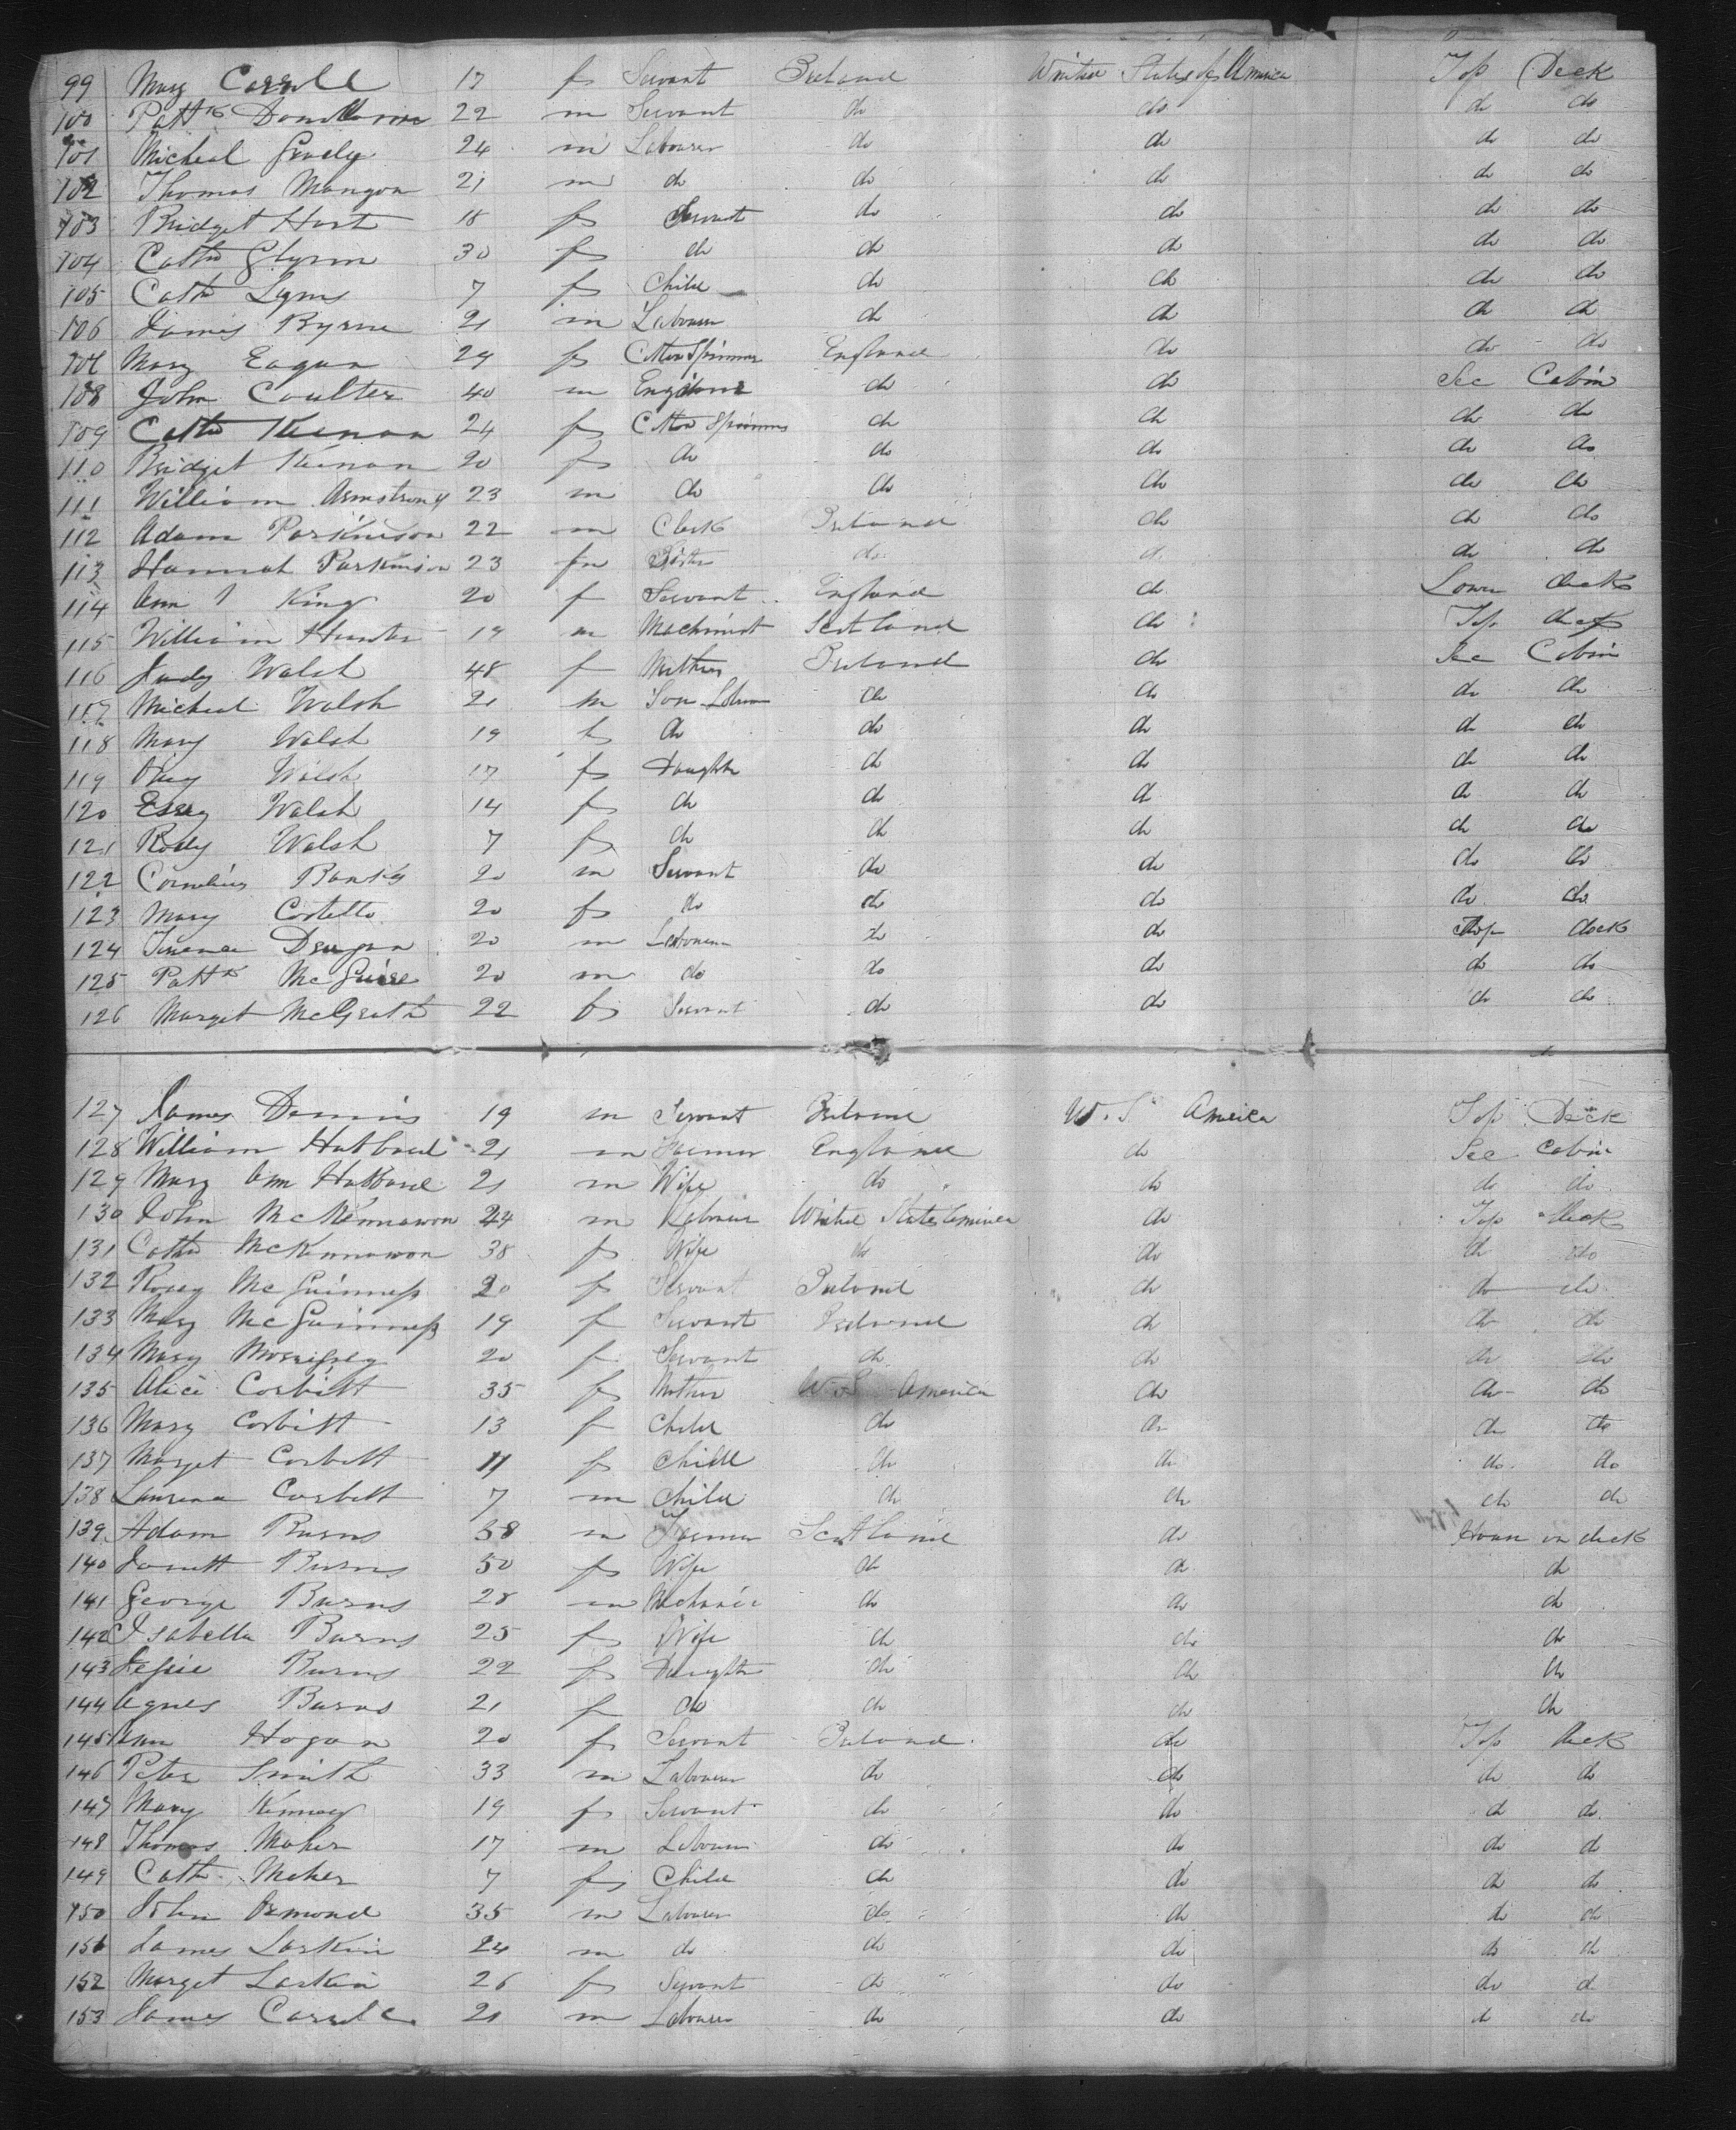 99 Mary Carroll 17 f Servant Ireland United States of America Top Deck
100 Pattk 22 m Servant do do do do
101 Micheal Grady 24 m Labourer do do do do
102 Thomas Mangon 21 m do do do do do
103 Bridget Hart 18 f Servant do do do do
104 Cathe Glynn 30 f do do do do do
105 Cathe Lyns 7 f Child do do do do
106 James Byrne 21 m Labourer do do do do
107 Mary Eagan 29 f Cotton Spinner England do do do
108 John Coulter 40 m Engineer do do Sec Cabin
109 Cathe Keenan 24 f Cotton Spinner do do do do
110 Bridget Keenan 20 f do do do do do
111 William Armstrong 23 m do do do do do
112 Adam Parkinson 22 m Clerk Ireland do do do
113 Hannah Parkinson 23 fm Sister do d. do do
114 Ann King 20 f Servant England do Lower deck
115 William Hunter 19 m Machinist Scotland do Top deck
116 Judy Walsh 48 f Mother Ireland do Sec Cabin
117 Micheal Walsh 21 m Son Labourer do do do do
118 Mary Walsh 19 f do do do do do
119 Walsh 17 f Daughter do do do do
120 Essey Walsh 14 f do do do do do
121 Rody Walsh 7 f do do do do do
122 Cornelius Banks 20 m Servant do do do do
123 Mary Costello 20 f do do do do do
124 Terence Deugan 20 m Labourer do do Top deck
125 Pattk McGuire 20 m do do do do do
126 Marget McGrath 22 f Servant do do do do
127 James Dennis 19 m Servant Ireland U. S America Top Deck
128 William Hubbard 21 m Farmer England do Sec Cabin
129 Mary Ann Hubbard 21 m Wife do do do do
130 John McKennawon 44 m Labourer United States America do Top deck
131 Cathe McKennawon 38 f Wife do do do do
132 Rosey McGuinness 20 f Servant Ireland do do do
133 Mary McGuinness 19 f Servant Ireland do do do
134 Mary Morrissey 20 f Servant do do do do
135 Alice Corbitt 35 f Mother U S America do do do
136 Mary Corbitt 13 f Child do do do do
137 Marget Corbett 11 f Child do do do do
138 Laurence Corbett 7 m Child do do do do
139 Adam Burns 58 m Farmer Scotland do House on deck
140 Janett Burns 50 f Wife do do do
141 George Burns 28 m Mechanic do do do
142 Isabella Burns 25 f Wife do do do
143 Jessie Burns 22 f Daughter do do do
144 Agnes Burns 21 f do do do do
145 Ann Hogan 20 f Servant Ireland do Top deck
146 Peter Smith 33 m Labourer do do do do
147 Mary Kenney 19 f Servant do do do do
148 Thomas Maher 17 m Labourer do do do do
149 Cathe Maher 7 f Child do do do do
150 John Ormond 35 m Labourer do do do do
151 James Larkin 24 m do do do do do
152 Marget Larkin 26 f Servant do do do do
153 James Carrole 21 m Labourer do do do do